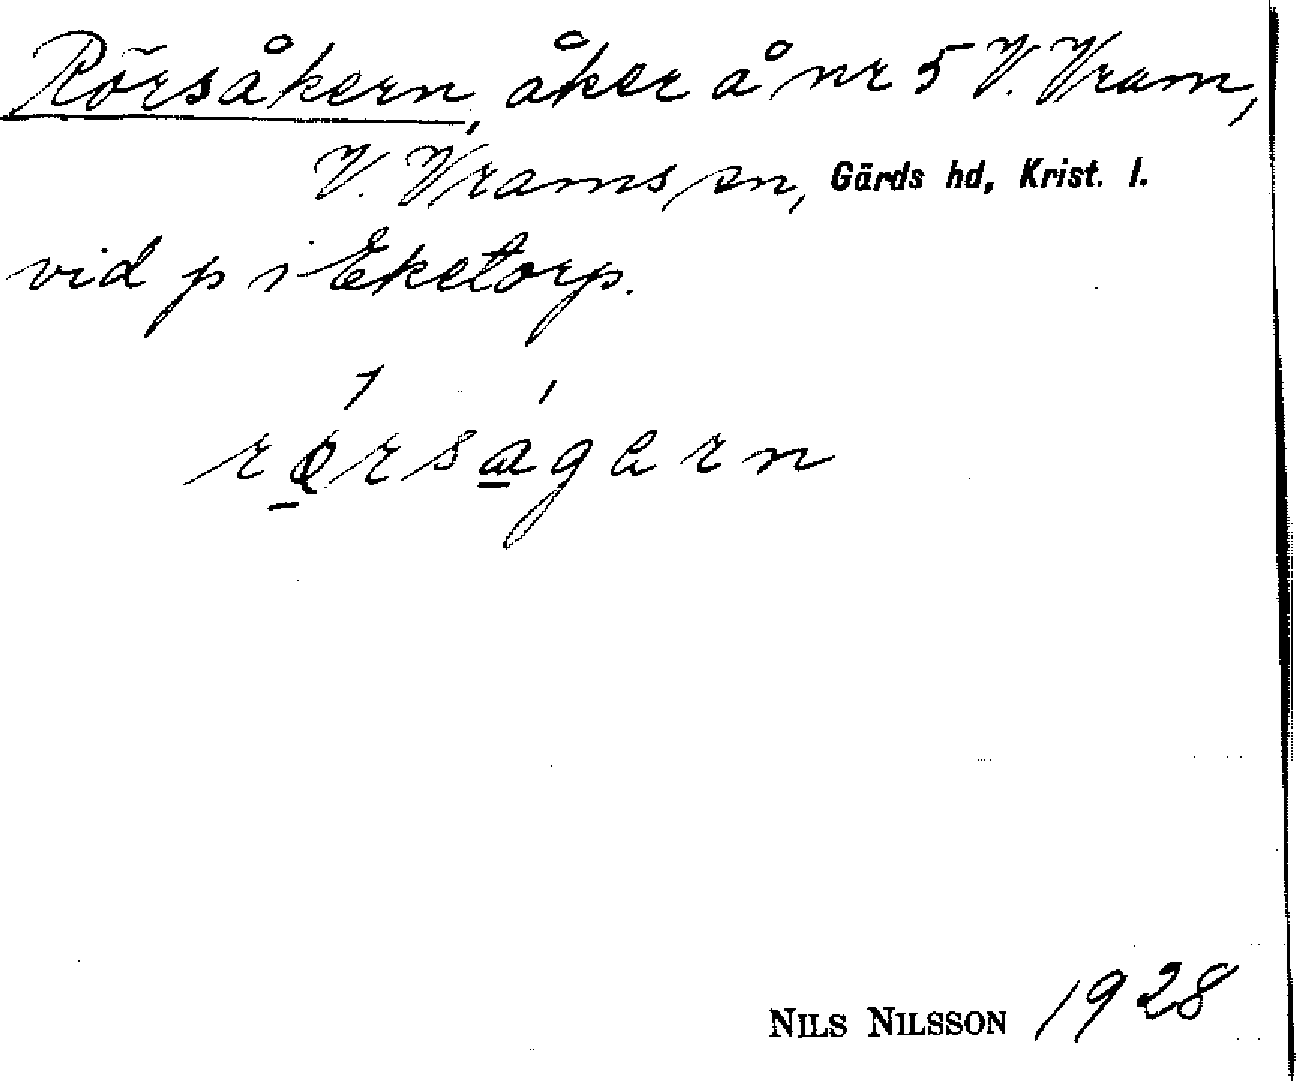 Rörsåkern, åker å nr 5 V. Vram,
V. Vrams sn, Gärds hd, Krist. l.
vid p i Eketorp.
rørsågern
NILS NILSSON 1928